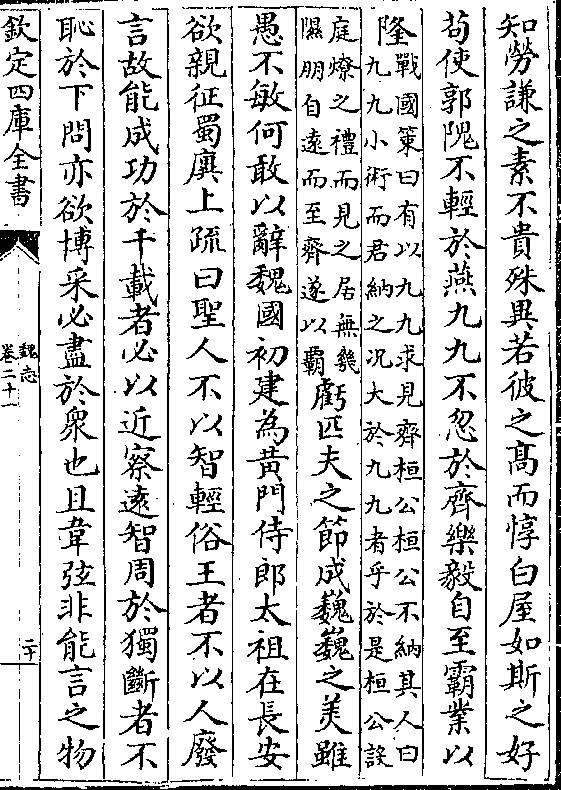 知勞謙之素不貴殊異若彼之高而惇白屋如斯之好
苟使郭隗不輕於燕九九不忽於齊樂毅自至霸業以
隆戰國策曰有以九九求見齊桓公桓公不納其人曰
九九小術而君納之况大於九九者乎於是桓公設
庭燎之禮而見之居無幾
隰朋自遠而至齊遂以霸虧匹夫之節成巍巍之美雖
愚不敏何敢以辭魏國初建為黃門侍郎太祖在長安
欲親征蜀廙上疏曰聖人不以智輕俗王者不以人廢
言故能成功於千載者必以近察遠智周於獨斷者不
恥於下問亦欲博采必盡於衆也且韋弦非能言之物
欽定四庫全書
魏志
卷二十一
二十